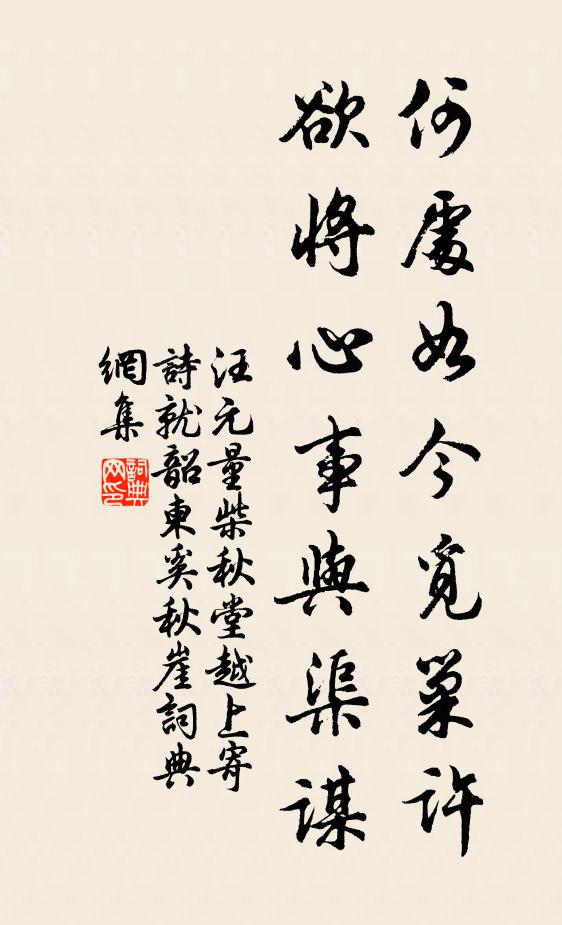 何處如今覓巢許
欲將心事與渠謀
汪元量柴秋堂越上寄
詩就韶東奚秋崖詞典
網集
詞典網印